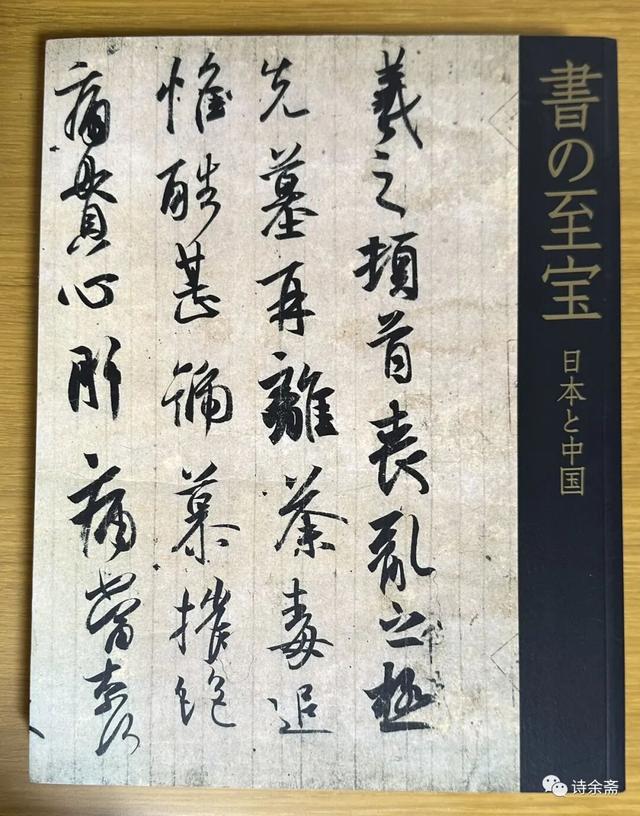 書の至宝
日本と中国
羲之頓首喪亂之極
先墓再離荼毒追
惟酷甚號慕摧絶
痛貫心肝痛當奈何
诗余斋